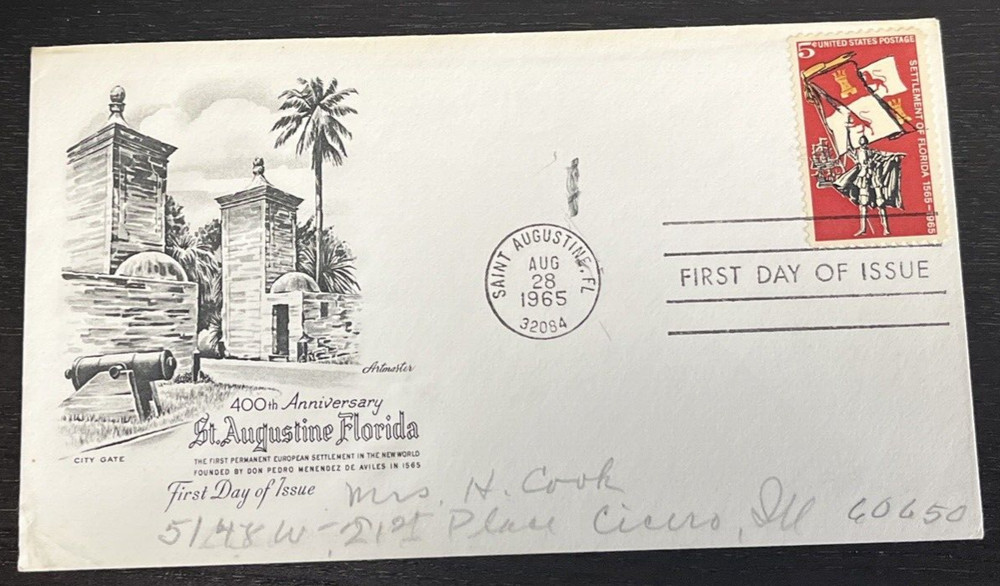 5¢ UNITED STATES POSTAGE
SETTLEMENT OF FLORIDA 1565-1965
SAINT AUGUSTINE, FL
AUG
28
1965
32084
FIRST DAY OF ISSUE
Artmaster
400th Anniversary
St. Augustine Florida
CITY GATE
THE FIRST PERMANENT EUROPEAN SETTLEMENT IN THE NEW WORLD
FOUNDED BY DON PEDRO MENENDEZ DE AVILES IN 1565
First Day of Issue
Mrs. H. Cook
5148 W - 21st Place Cicero, Ill 60650